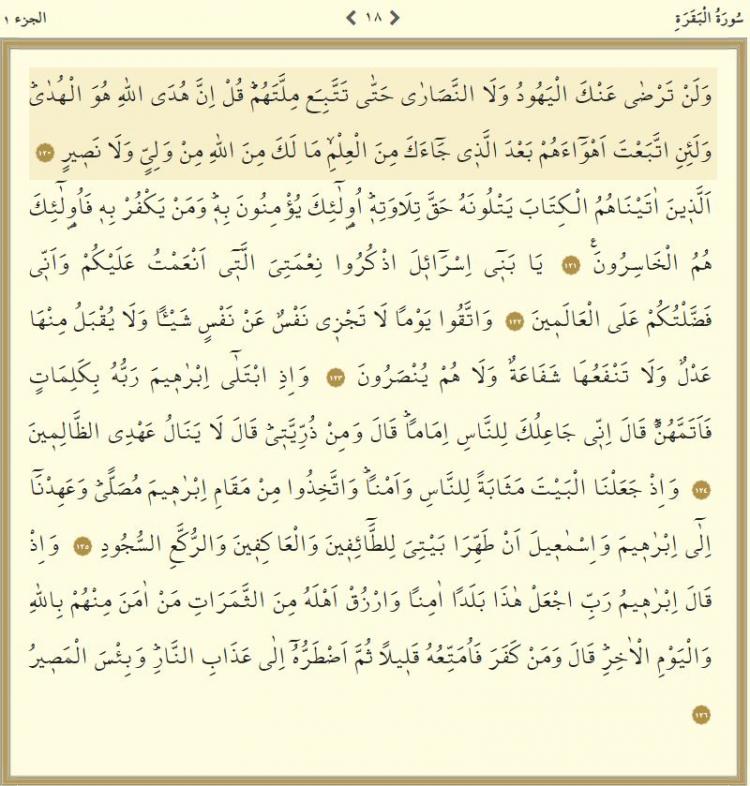 سُورَةُ الْبَقَرَةِ ١٨ الجزء ١
وَلَنْ تَرْضٰى عَنْكَ الْيَهُودُ وَلَا النَّصَارٰى حَتّٰى تَتَّبِعَ مِلَّتَهُمْۜ قُلْ اِنَّ هُدَى اللّٰهِ هُوَ الْهُدٰىۜ
وَلَئِنِ اتَّبَعْتَ اَهْوَٓاءَهُمْ بَعْدَ الَّذ۪ي جَٓاءَكَ مِنَ الْعِلْمِۙ مَا لَكَ مِنَ اللّٰهِ مِنْ وَلِيٍّ وَلَا نَص۪يرٍ ١٢٠
اَلَّذ۪ينَ اٰتَيْنَاهُمُ الْكِتَابَ يَتْلُونَهُ حَقَّ تِلَاوَتِه۪ۜ اُو۬لٰٓئِكَ يُؤْمِنُونَ بِه۪ۜ وَمَنْ يَكْفُرْ بِه۪ فَاُو۬لٰٓئِكَ
هُمُ الْخَاسِرُونَ۟ ١٢١ يَا بَن۪ٓي اِسْرَٓائ۪لَ اذْكُرُوا نِعْمَتِيَ الَّت۪ٓي اَنْعَمْتُ عَلَيْكُمْ وَاَنّ۪ي
فَضَّلْتُكُمْ عَلَى الْعَالَم۪ينَ ١٢٢ وَاتَّقُوا يَوْمًا لَا تَجْز۪ي نَفْسٌ عَنْ نَفْسٍ شَيْـًٔا وَلَا يُقْبَلُ مِنْهَا
عَدْلٌ وَلَا تَنْفَعُهَا شَفَاعَةٌ وَلَا هُمْ يُنْصَرُونَ ١٢٣ وَاِذِ ابْتَلٰٓى اِبْرٰه۪يمَ رَبُّهُ بِكَلِمَاتٍ
فَاَتَمَّهُنَّۜ قَالَ اِنّ۪ي جَاعِلُكَ لِلنَّاسِ اِمَامًاۜ قَالَ وَمِنْ ذُرِّيَّت۪يۜ قَالَ لَا يَنَالُ عَهْدِي الظَّالِم۪ينَ
١٢٤ وَاِذْ جَعَلْنَا الْبَيْتَ مَثَابَةً لِلنَّاسِ وَاَمْنًاۜ وَاتَّخِذُوا مِنْ مَقَامِ اِبْرٰه۪يمَ مُصَلًّىۜ وَعَهِدْنَٓا
اِلٰٓى اِبْرٰه۪يمَ وَاِسْمٰع۪يلَ اَنْ طَهِّرَا بَيْتِيَ لِلطَّٓائِف۪ينَ وَالْعَاكِف۪ينَ وَالرُّكَّعِ السُّجُودِ ١٢٥ وَاِذْ
قَالَ اِبْرٰه۪يمُ رَبِّ اجْعَلْ هٰذَا بَلَدًا اٰمِنًا وَارْزُقْ اَهْلَهُ مِنَ الثَّمَرَاتِ مَنْ اٰمَنَ مِنْهُمْ بِاللّٰهِ
وَالْيَوْمِ الْاٰخِرِۜ قَالَ وَمَنْ كَفَرَ فَاُمَتِّعُهُ قَل۪يلًا ثُمَّ اَضْطَرُّهُٓ اِلٰى عَذَابِ النَّارِۜ وَبِئْسَ الْمَص۪يرُ
١٢٦